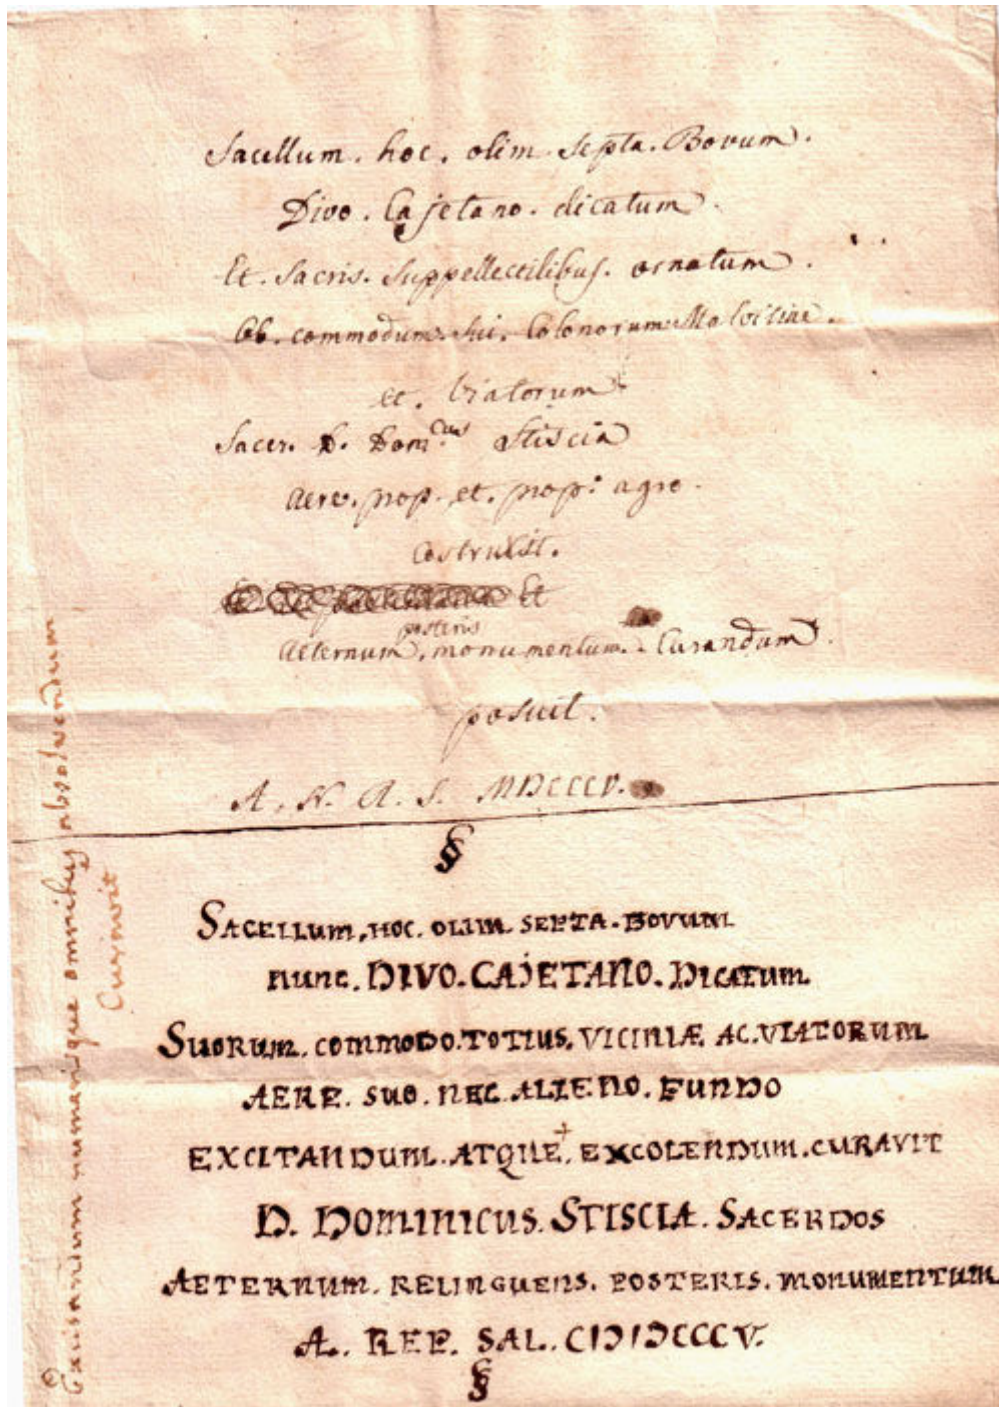 Sacellum. hoc. olim. septa. Bovum.
Divo. Cajetano. dicatum.
Et. Sacris. Suppellectilibus. ornatum.
Ob. commodum. sui. Colonorum.
et. Viatorum
Sacer. D. Dom.cus Stiscia
Aere. prop. et. prop.o agro.
Costruxit.
Et
posteris
Aeternum. monumentum. Curandum.
posuit.
A. N. A. S. MDCCCV.
§
SACELLUM. HOC. OLIM. SEPTA. BOVUM
nunc. DIVO. CAJETANO. DICATUM.
SUORUM. COMMODO. TOTIUS. VICINIÆ. AC. VIATORUM
AERE. SUO. NEC. ALIENO. FUNDO
EXCITANDUM. ATQUE.+ EXCOLENDUM. CURAVIT
D. DOMINICUS. STISCIA. SACERDOS
AETERNUM. RELINGUENS. POSTERIS. MONUMENTUM
A. REP. SAL. CIƆIƆCCCV.
§
numerisque omnibus absolvendum
Curavit